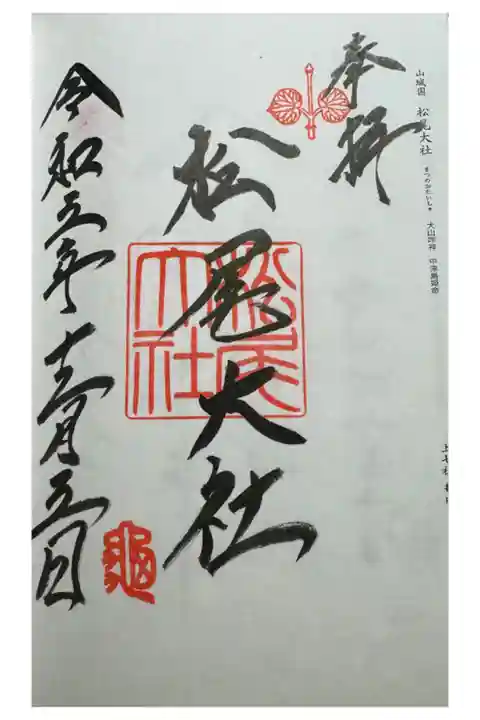 山城国 松尾大社 まつのおたいしゃ 大山咋神 中津島姫命
奉拝
松尾大社
松尾大社
令和三年十二月三日